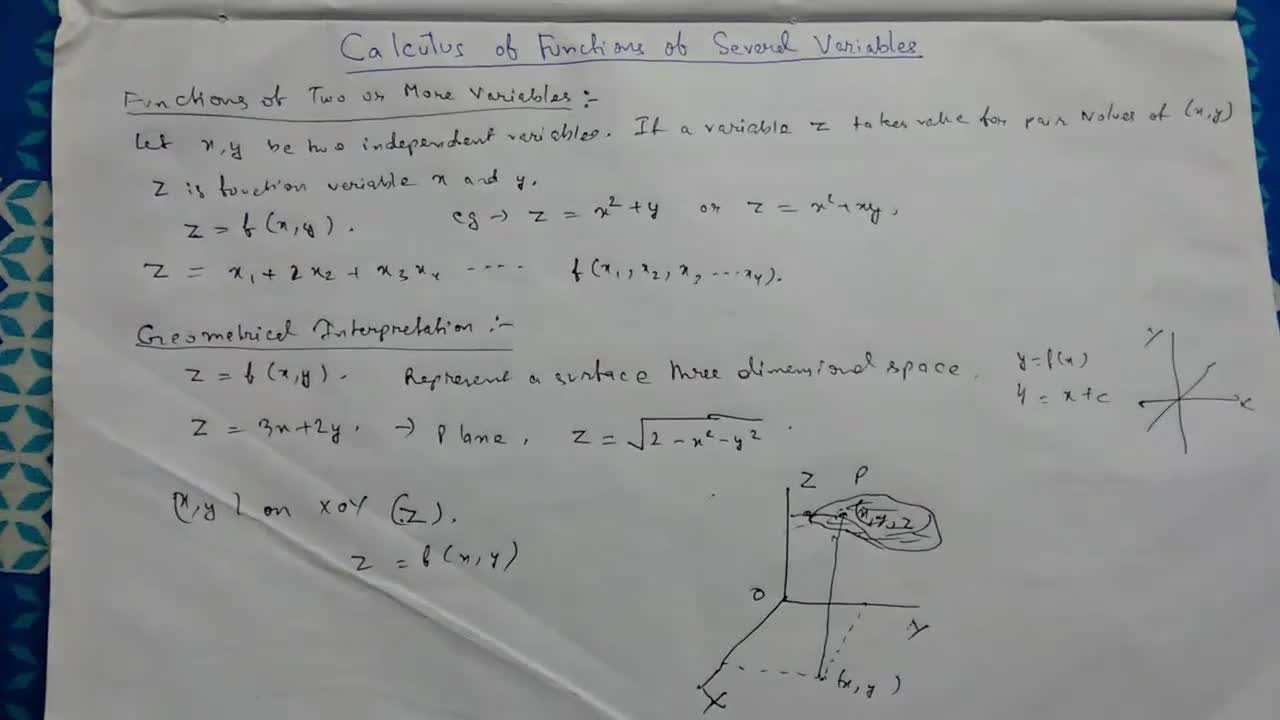 Calculus of Functions of Several Variables
Functions of Two or More Variables :-
Let x, y be two independent variables. If a variable z takes value for pair values of (x, y)
Z is function variable x and y.
Z = f (x, y). eg → z = x² + y or z = x² + xy,
Z = x₁ + 2x₂ + x₃ x₄ ---- f (x₁, x₂, x₃ ---- x₄).
Geometrical Interpretation :-
Z = f (x, y). Represent a surface three dimensional space.
y = f(x)
y = x + c
Y
X
Z = 3x + 2y. → Plane, Z = √2 - x² - y² .
(x, y) on XOY (Z).
Z = f (x, y)
Z P
(x, y, z)
O
Y
(x, y)
X